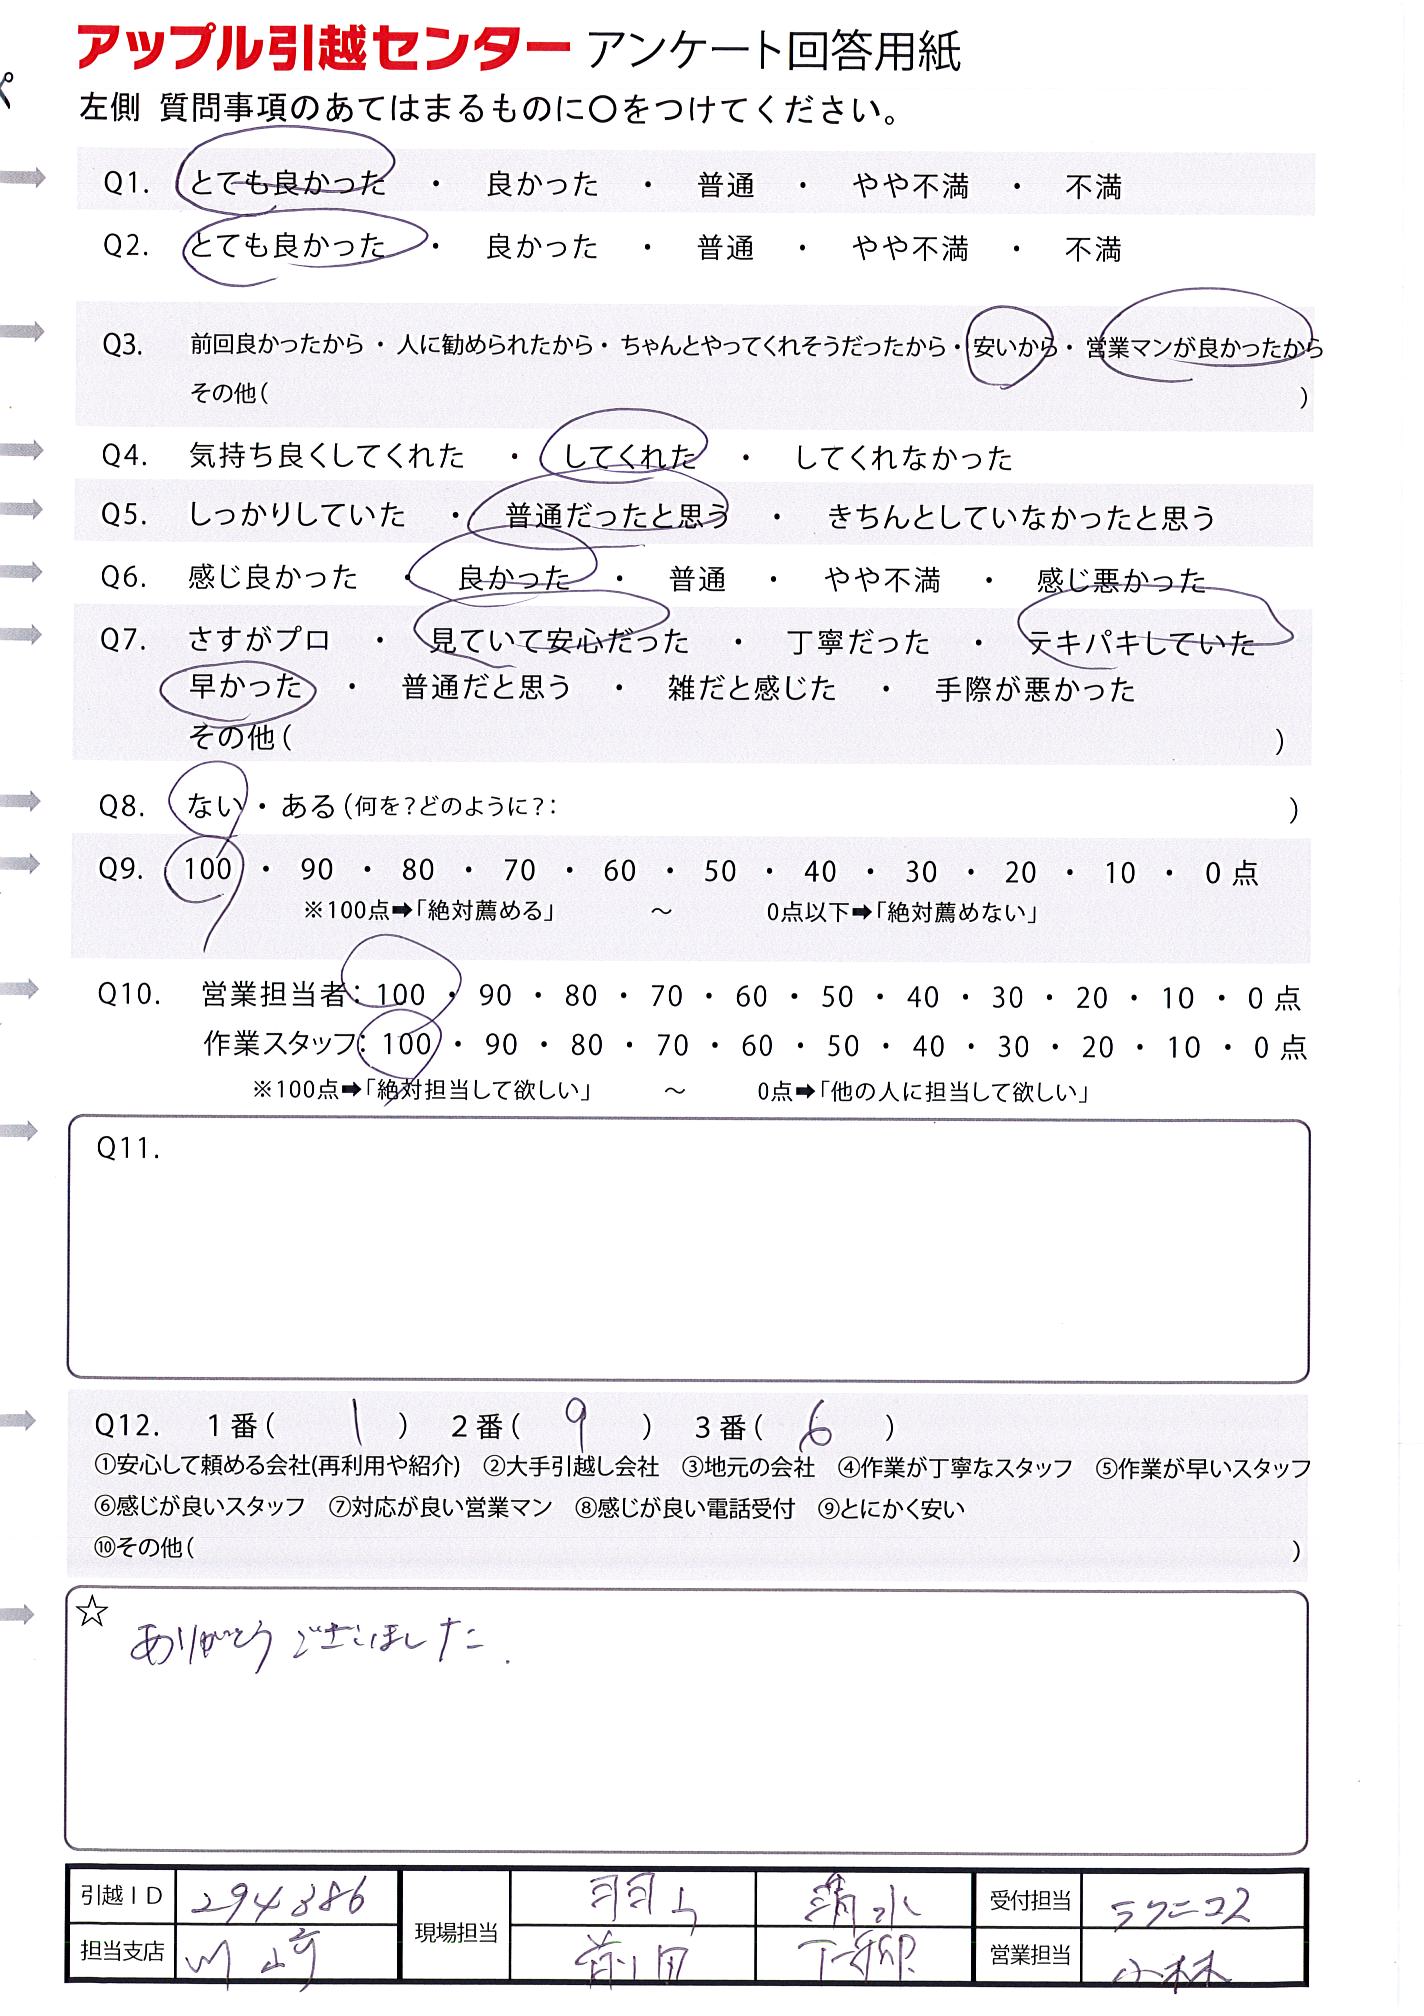 アップル引越センター アンケート回答用紙
左側 質問事項のあてはまるものに〇をつけてください。
Q1. とても良かった ・ 良かった ・ 普通 ・ やや不満 ・ 不満
Q2. とても良かった ・ 良かった ・ 普通 ・ やや不満 ・ 不満
Q3. 前回良かったから ・ 人に勧められたから ・ ちゃんとやってくれそうだったから ・ 安いから ・ 営業マンが良かったから
その他( )
Q4. 気持ち良くしてくれた ・ してくれた ・ してくれなかった
Q5. しっかりしていた ・ 普通だったと思う ・ きちんとしていなかったと思う
Q6. 感じ良かった ・ 良かった ・ 普通 ・ やや不満 ・ 感じ悪かった
Q7. さすがプロ ・ 見ていて安心だった ・ 丁寧だった ・ テキパキしていた
早かった ・ 普通だと思う ・ 雑だと感じた ・ 手際が悪かった
その他( )
Q8. ない ・ ある (何を?どのように?: )
Q9. 100 ・ 90 ・ 80 ・ 70 ・ 60 ・ 50 ・ 40 ・ 30 ・ 20 ・ 10 ・ 0 点
※100点➡「絶対薦める」 ～ 0点以下➡「絶対薦めない」
Q10. 営業担当者: 100 ・ 90 ・ 80 ・ 70 ・ 60 ・ 50 ・ 40 ・ 30 ・ 20 ・ 10 ・ 0 点
作業スタッフ: 100 ・ 90 ・ 80 ・ 70 ・ 60 ・ 50 ・ 40 ・ 30 ・ 20 ・ 10 ・ 0 点
※100点➡「絶対担当して欲しい」 ～ 0点➡「他の人に担当して欲しい」
Q11.
Q12. 1番( 1 ) 2番( 9 ) 3番( 6 )
①安心して頼める会社(再利用や紹介) ②大手引越し会社 ③地元の会社 ④作業が丁寧なスタッフ ⑤作業が早いスタッフ
⑥感じが良いスタッフ ⑦対応が良い営業マン ⑧感じが良い電話受付 ⑨とにかく安い
⑩その他( )
☆ ありがとうございました.
引越ID 294386 現場担当 羽山 清水 受付担当 ラクニコス
担当支店 川崎 前田 下柳 営業担当 小林